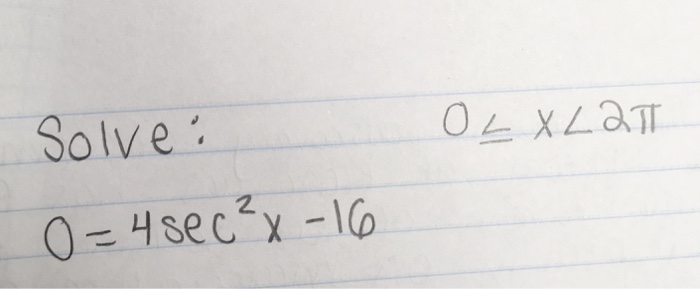 Solve: 0 ≤ x < 2π
0 = 4 sec²x - 16